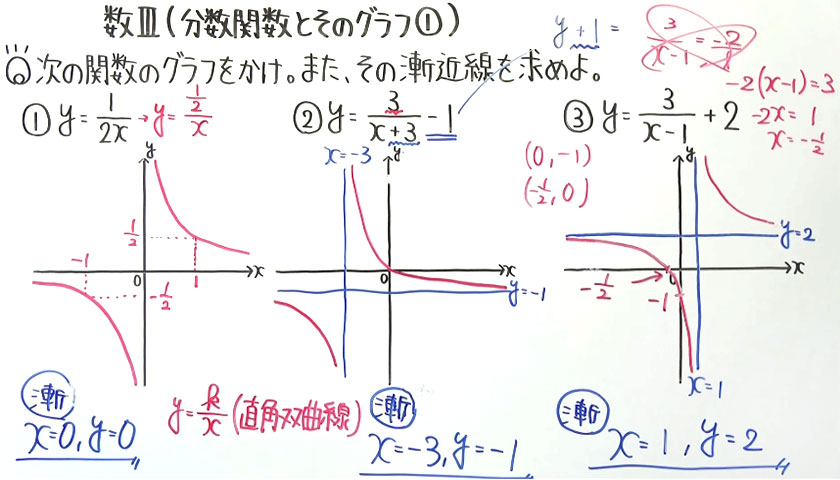 数Ⅲ(分数関数とそのグラフ①)
y+1 =
3/(x-1) = -2/1
◎次の関数のグラフをかけ。また、その漸近線を求めよ。
-2(x-1)=3
-2x= 1
x=-1/2
① y= 1/2x → y= (1/2)/x
② y= 3/(x+3) -1
③ y= 3/(x-1) +2
y
1/2
-1
0
1
x
-1/2
x=-3
y
0
x
y=-1
(0,-1)
(-1/2,0)
y
y=2
x
0
-1/2
-1
x=1
漸
x=0, y=0
y= k/x (直角双曲線)
漸
x=-3, y=-1
漸
x=1, y=2